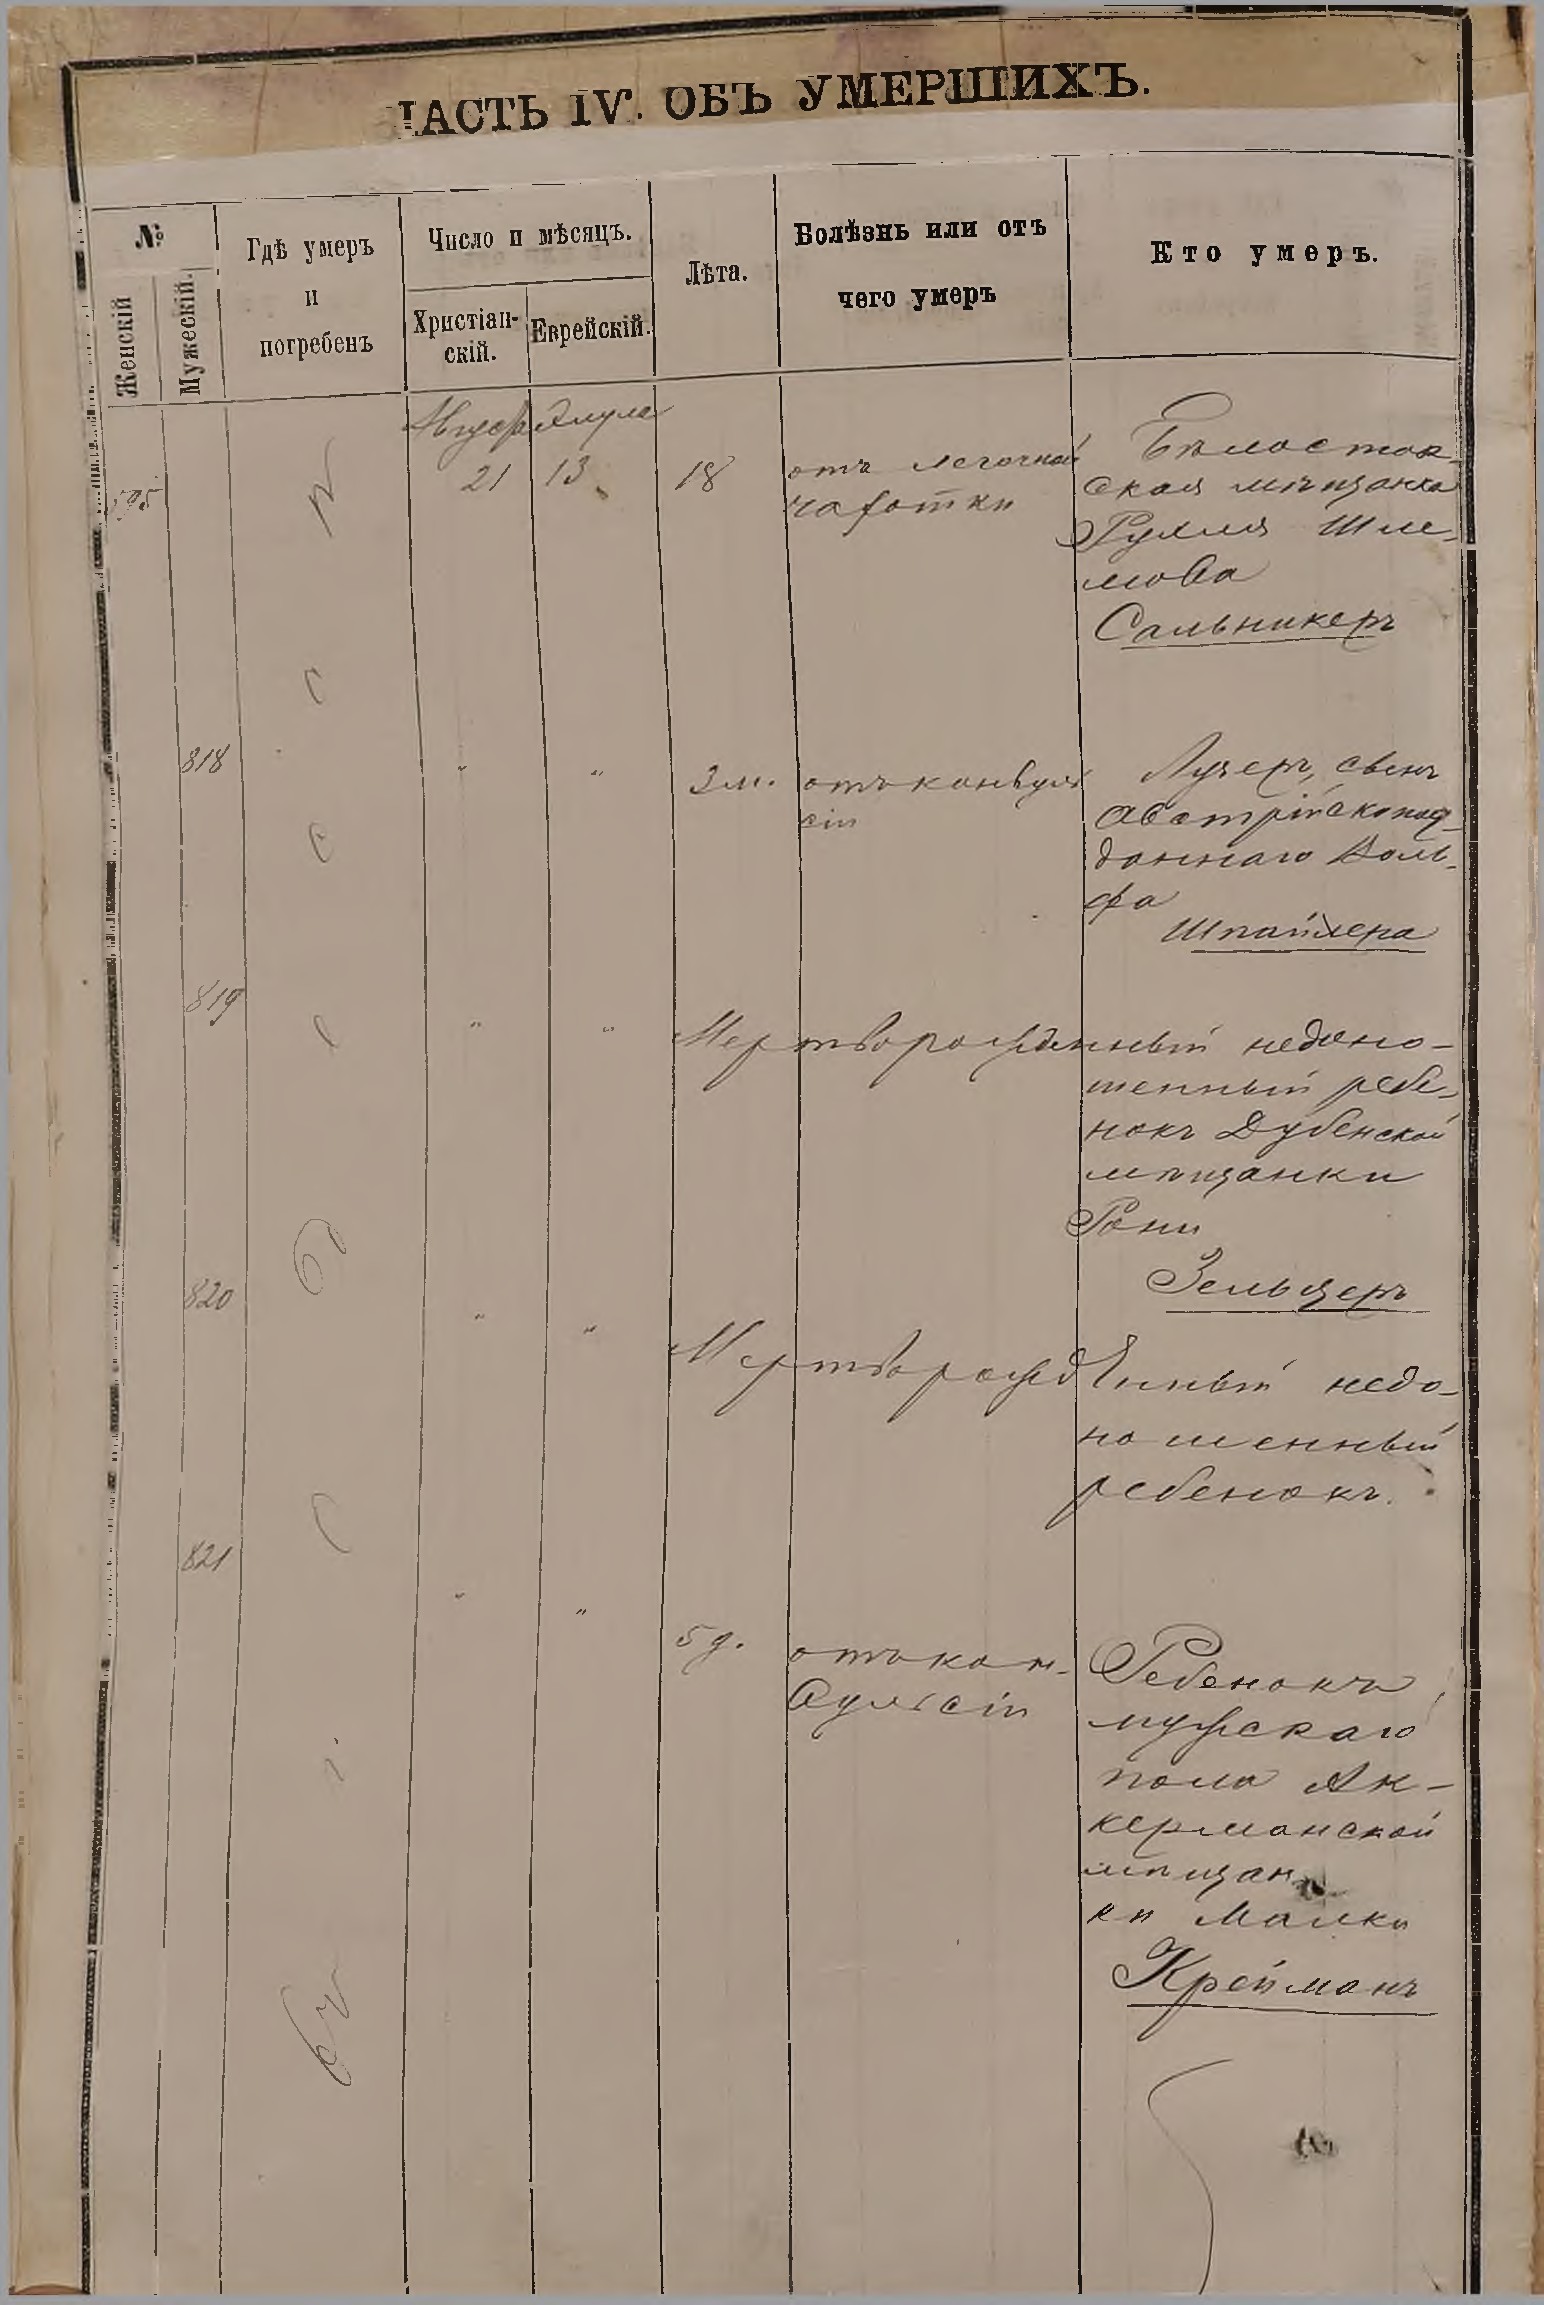 ЧАСТЬ IV. ОБЪ УМЕРШИХЪ.
№
Женскій
Мужескій.
Гдѣ умеръ
и
погребенъ
Число и мѣсяцъ.
Христіан-
скій.
Еврейскій.
Лѣта.
Болѣзнь или отъ
чего умеръ
Кто умеръ.
Август Элула
595 21 13 18 отъ легочной Бѣлосток-
чахотки ская мѣщанка
Рухля Шле-
мова
Сальникеръ
818 " " 3 м. отъ конвуль Лузеръ, сынъ
сіи австрійскопод-
даннаго Воль-
фа
Шпайхера
819 " " Мертворожденный недоно-
шенный ребе-
нокъ Дубенской
мѣщанки
Рони
Зельцеръ
820 " " Мертворожденный недо-
ношенный
ребенокъ.
821 " " 5 д. отъ кон- Ребенокъ
вульсіи мужскаго
пола Ак-
керманской
мѣщан
ки Малки
Крейманъ